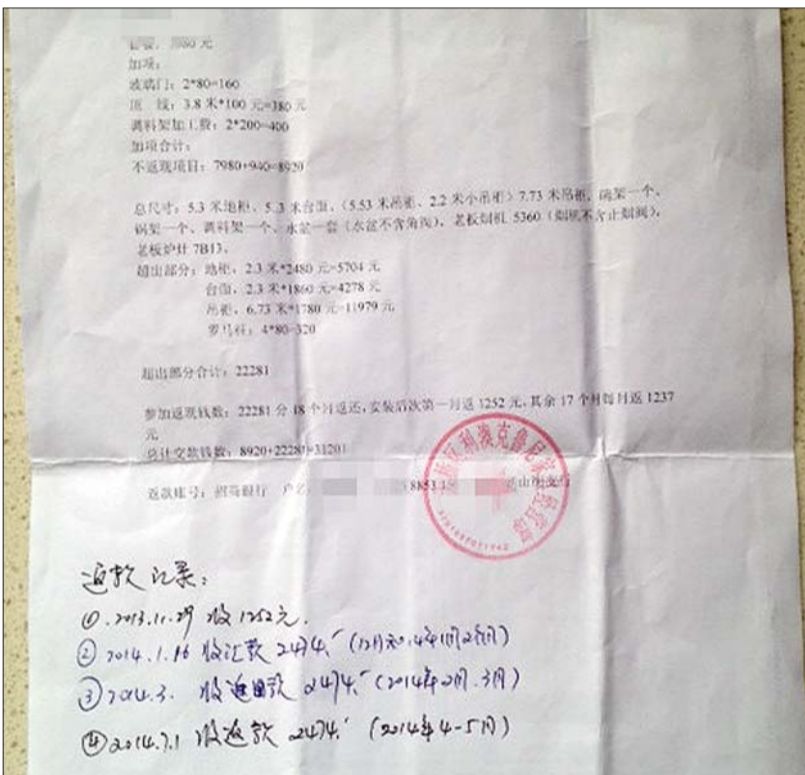 套餐：7980 元
加项：
玻璃门：2*80=160
顶 线：3.8 米*100 元=380 元
调料架加工费：2*200=400
加项合计：
不返现项目：7980+940=8920
总尺寸：5.3 米地柜、5.3 米台面、（5.53 米吊柜、2.2 米小吊柜）7.73 米吊柜，碗架一个、
锅架一个、调料架一个、水盆一套（水盆不含角阀），老板烟机 5360（烟机不含止烟阀），
老板炉灶 7B13。
超出部分：地柜，2.3 米*2480 元=5704 元
台面，2.3 米*1860 元=4278 元
吊柜，6.73 米*1780 元=11979 元
罗马柱：4*80=320
超出部分合计：22281
参加返现钱数：22281 分 18 个月返还，安装后次第一月返 1252 元，其余 17 个月每月返 1237
元
总计交款钱数：8920+22281=31201
返款账号：招商银行 户名
8853
山南支行
利澳克鲁尼家居经营部
返款记录：
① 2013.11.29 收1252元.
② 2014.1.16 收汇款 2474.
③ 2014.3. 收返回款 2474. (2014年2月.3月)
④ 2014.7.1 收返款 2474. (2014年4-5月)